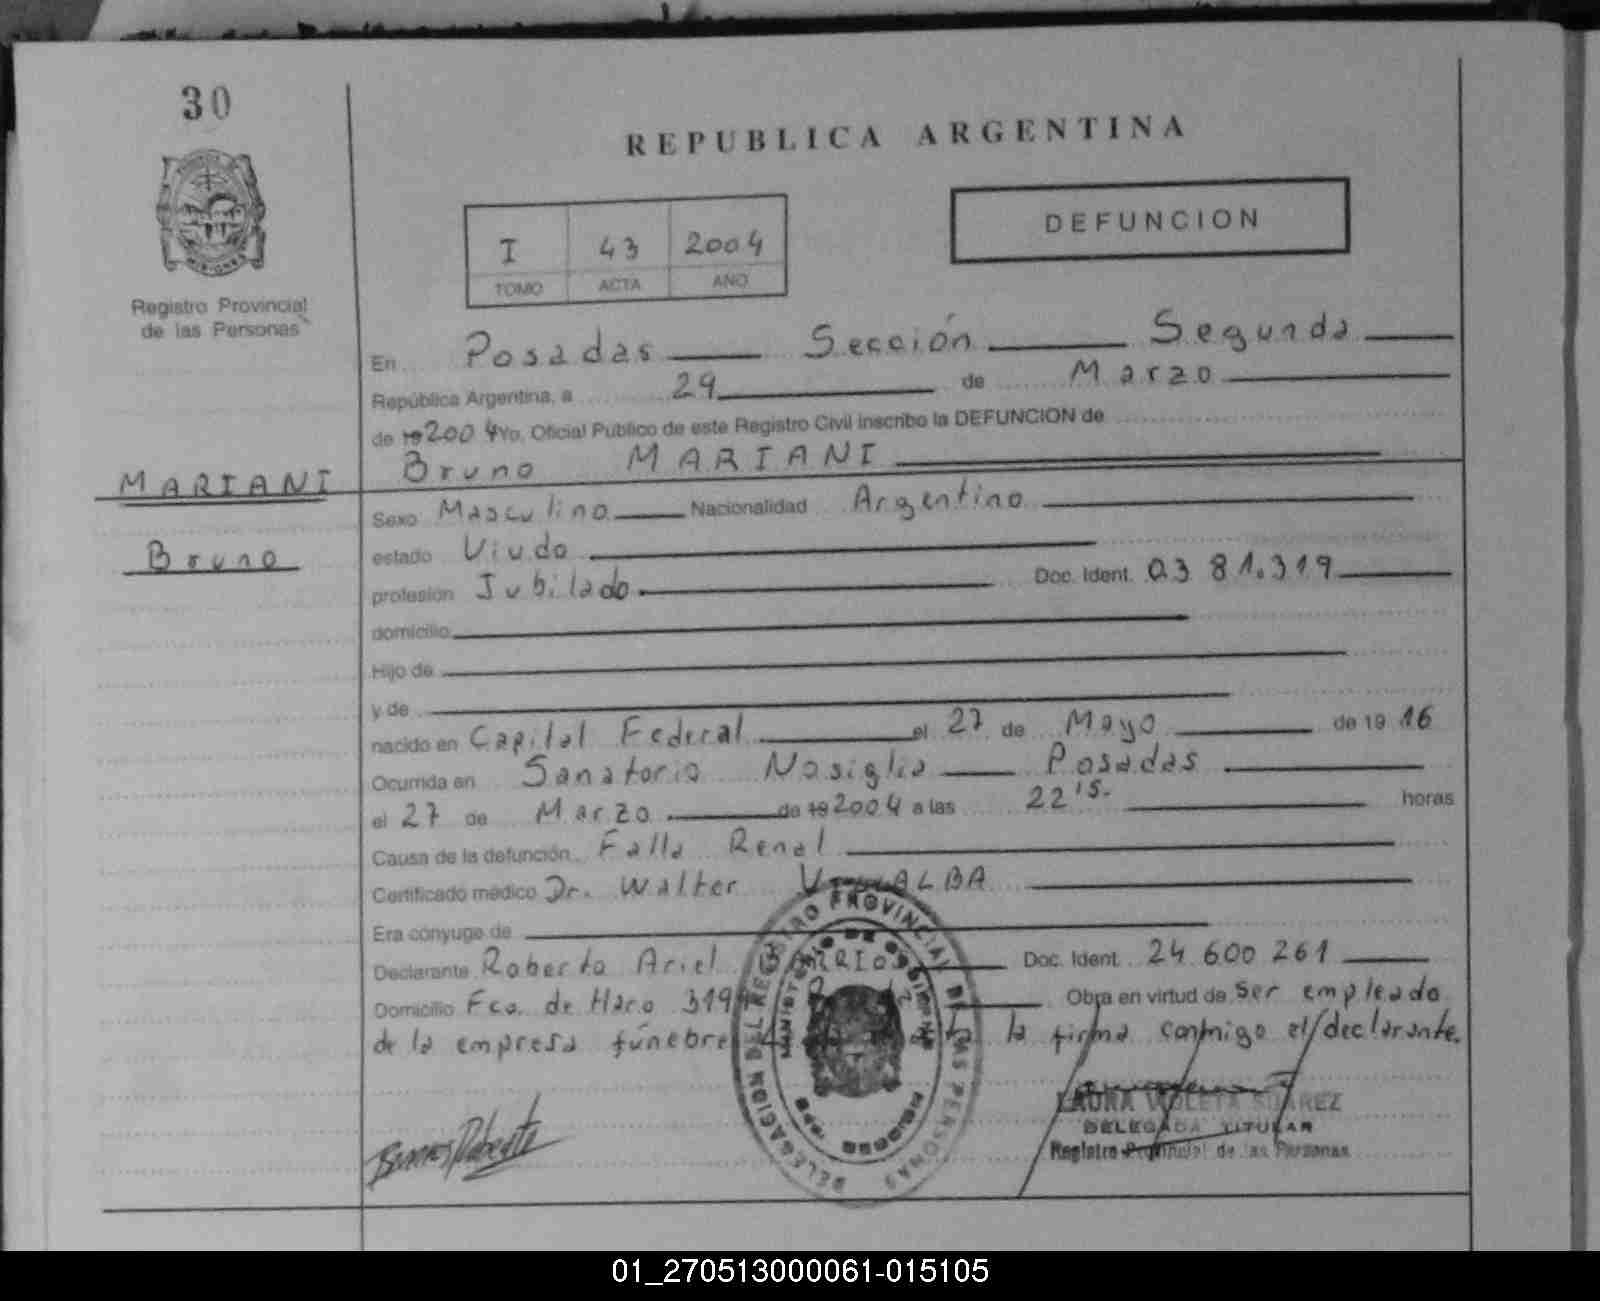 30
REPUBLICA ARGENTINA
I 43 2004
TOMO ACTA AÑO
DEFUNCION
Registro Provincial
de las Personas
En Posadas Sección Segunda
República Argentina, a 29 de Marzo
de 19 2004 Yo, Oficial Público de este Registro Civil inscribo la DEFUNCION de
Bruno MARIANI
MARIANI
Bruno
Sexo Masculino Nacionalidad Argentino
estado Viudo
profesión Jubilado Doc. Ident. 0381.319
domicilio
Hijo de
y de
nacido en Capital Federal el 27 de Mayo de 19 16
Ocurrida en Sanatorio Nosiglia Posadas
el 27 de Marzo de 19 2004 a las 22 15. horas
Causa de la defunción Falla Renal
Certificado médico Dr. Walter
Era cónyuge de
Declarante Roberto Ariel BARRIOS Doc. Ident. 24.600 261
Domicilio Fco. de Haro Obra en virtud de Ser empleado
de la empresa fúnebre la firma conmigo el declarante.
DELEGACION DEL REGISTRO PROVINCIAL DE LAS PERSONAS
LAURA VIOLETA SUAREZ
DELEGADA TITULAR
Registro Provincial de las Personas
01_270513000061-015105